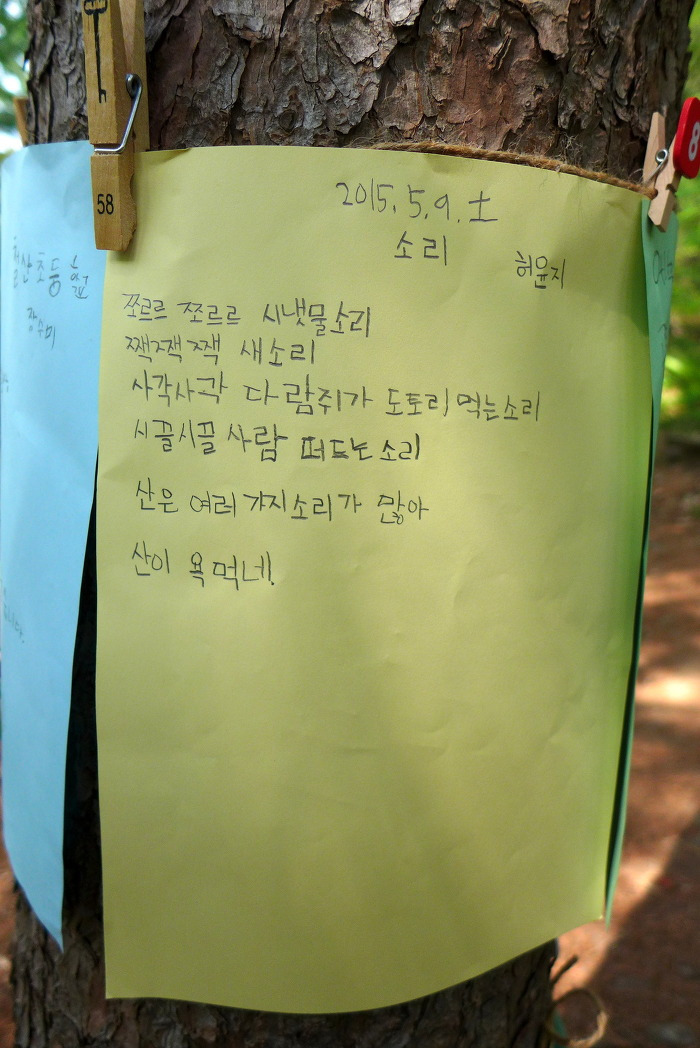 58
2015. 5. 9. 土
소리
허윤지
쪼르르 쪼르르 시냇물소리
짹짹짹 새소리
사각사각 다람쥐가 도토리 먹는소리
시끌시끌 사람 떠드는소리
산은 여러가지소리가 많아
산이 욕먹네!
초등
장수미
8